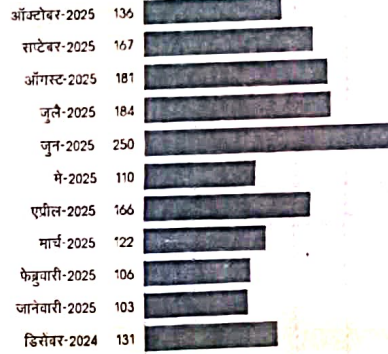 ऑक्टोबर-2025 136
सप्टेबर-2025 167
ऑगस्ट-2025 181
जुलै-2025 184
जुन-2025 250
मे-2025 110
एप्रील-2025 166
मार्च-2025 122
फेब्रुवारी-2025 106
जानेवारी-2025 103
डिसेंबर-2024 131